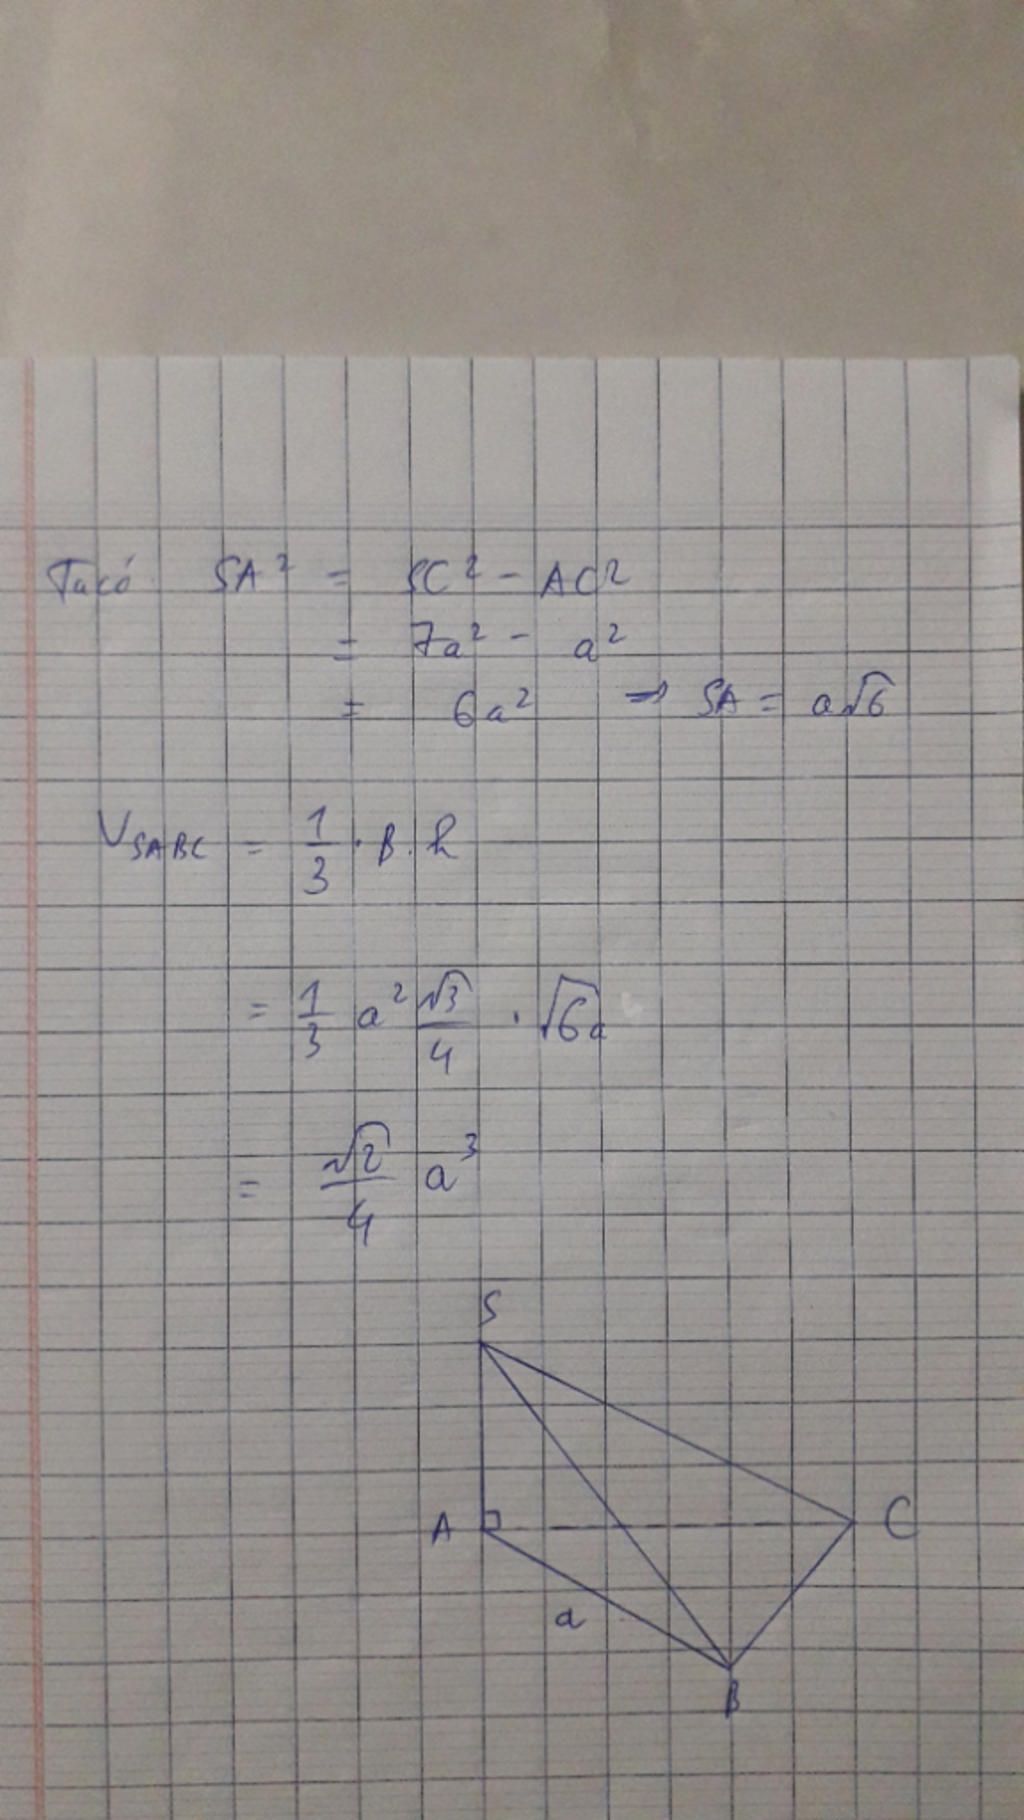 Ta có SA² = SC² - AC²
= 7a² - a²
= 6a² => SA = a√6
V_SABC = 1/3 . B . h
= 1/3 a² √3/4 . √6a
= √2/4 a³
S
A
C
a
B